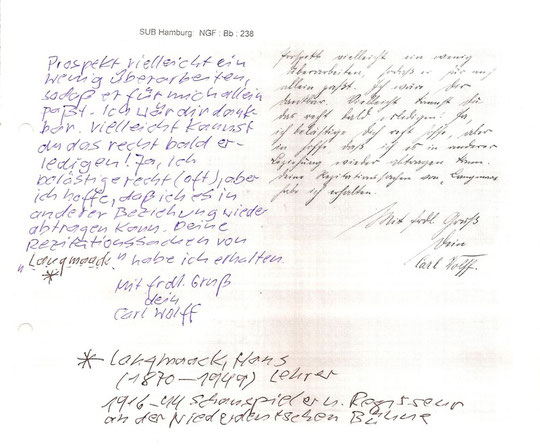 SUB Hamburg: NGF : Bb : 238
Prospekt vielleicht ein
wenig überarbeiten,
sodaß er für mich allein
paßt. Ich wär dir dank-
bar. Vielleicht kannst
du das recht bald er-
ledigen! Ja, ich
belästige recht (oft), aber
ich hoffe, daß ich es in
anderer Beziehung wieder
abtragen kann. Deine
Rezitationssachen von
"Langmaack" habe ich erhalten.
*
Mit frdl. Gruß
dein
Carl Wolff
Prospekt vielleicht ein wenig
überarbeiten, sodaß er für mich
allein paßt. Ich wäre dir
dankbar. Vielleicht kannst du
das recht bald erledigen! Ja,
ich belästige dich recht oft, aber
ich hoffe daß ich es in anderer
Beziehung wieder abtragen kann.
Deine Rezitationssachen von
habe ich erhalten.
Mit frdl. Gruß
Dein
Carl Wolff.
* Langmaack, Hans
(1870-1949) Lehrer
1916-44 Schauspieler u. Regisseur
an der Niederdeutschen Bühne